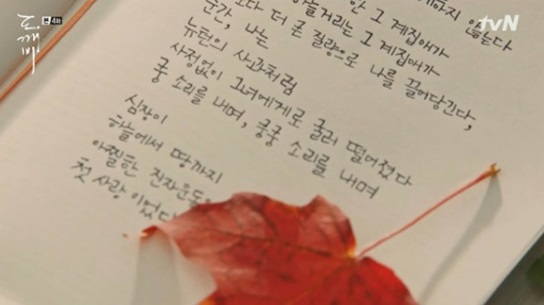 도깨비
4회
tvN
하지 않는다
거리는 그 계집애가
더 큰 질량으로 나를 끌어당긴다,
순간, 나는
뉴턴의 사과처럼
사정없이 그녀에게로 굴러 떨어졌다
쿵 소리를 내며, 쿵쿵 소리를 내며
심장이
하늘에서 땅까지
아찔한 진자운동
첫사랑이었다